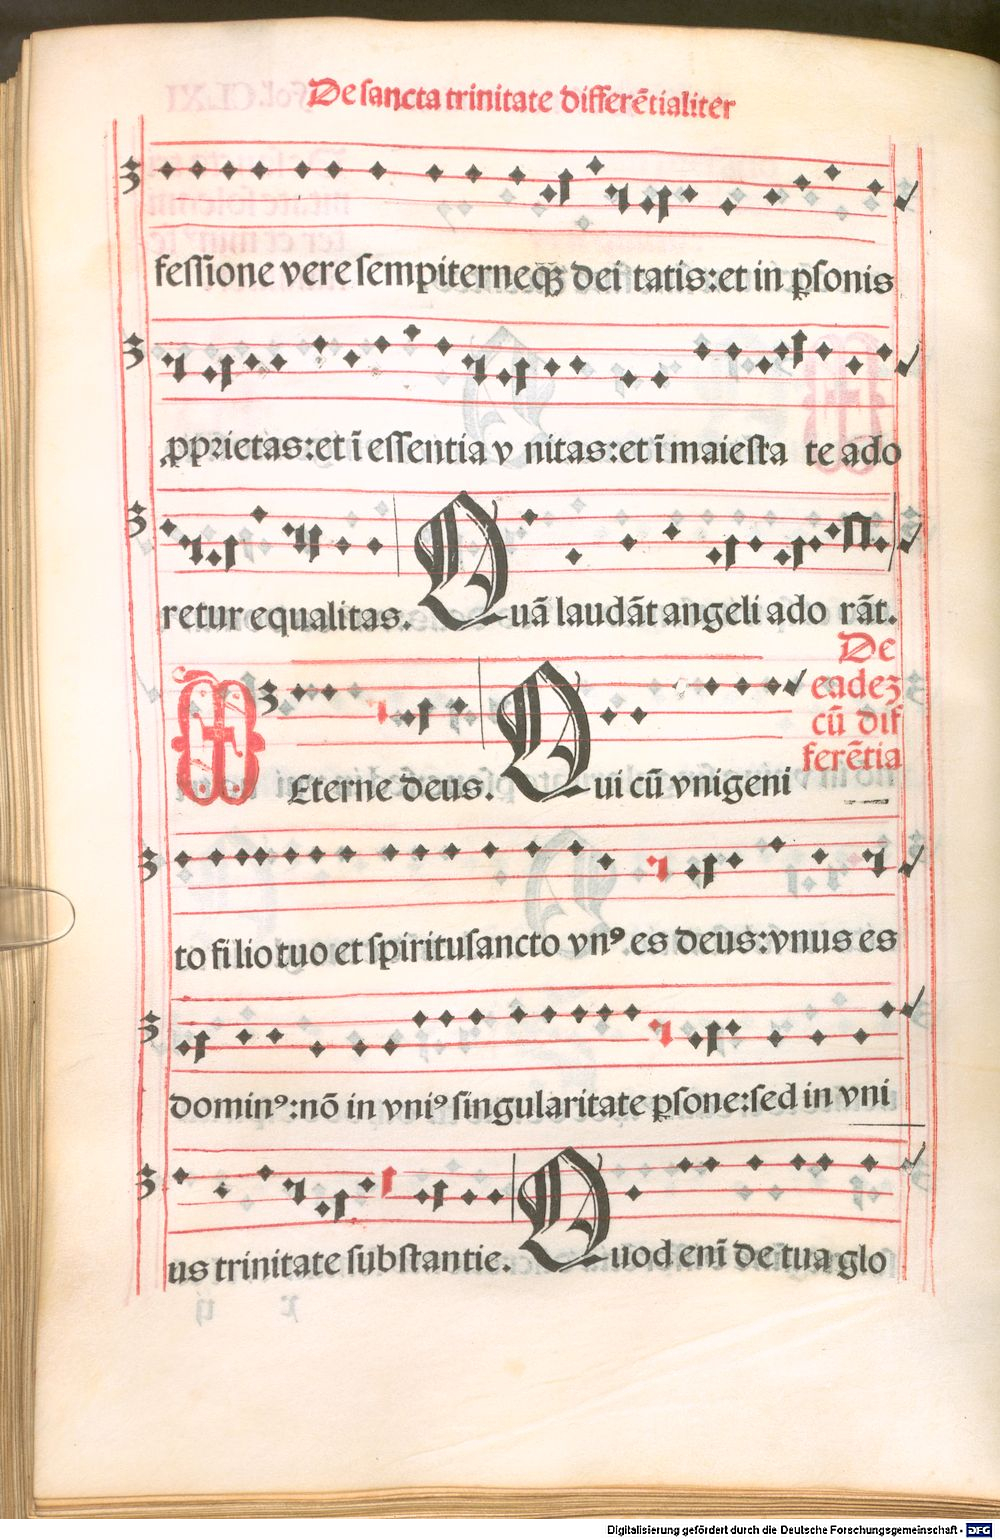 De sancta trinitate differẽtialiter
fessione vere sempiterneqꝫ dei tatis: et in ꝑsonis
ꝓprietas: et ĩ essentia v nitas: et ĩ maiesta te ado
retur equalitas. Quã laudãt angeli ado rãt.
De
eadeꝫ
cũ dif
ferẽtia
Eterne deus. Qui cũ vnigeni
to filio tuo et spiritusancto vnꝰ es deus: vnus es
dominꝰ: nõ in vniꝰ singularitate ꝑsone: sed in vni
us trinitate substantie. Quod enĩ de tua glo
Digitalisierung gefördert durch die Deutsche Forschungsgemeinschaft - DFG